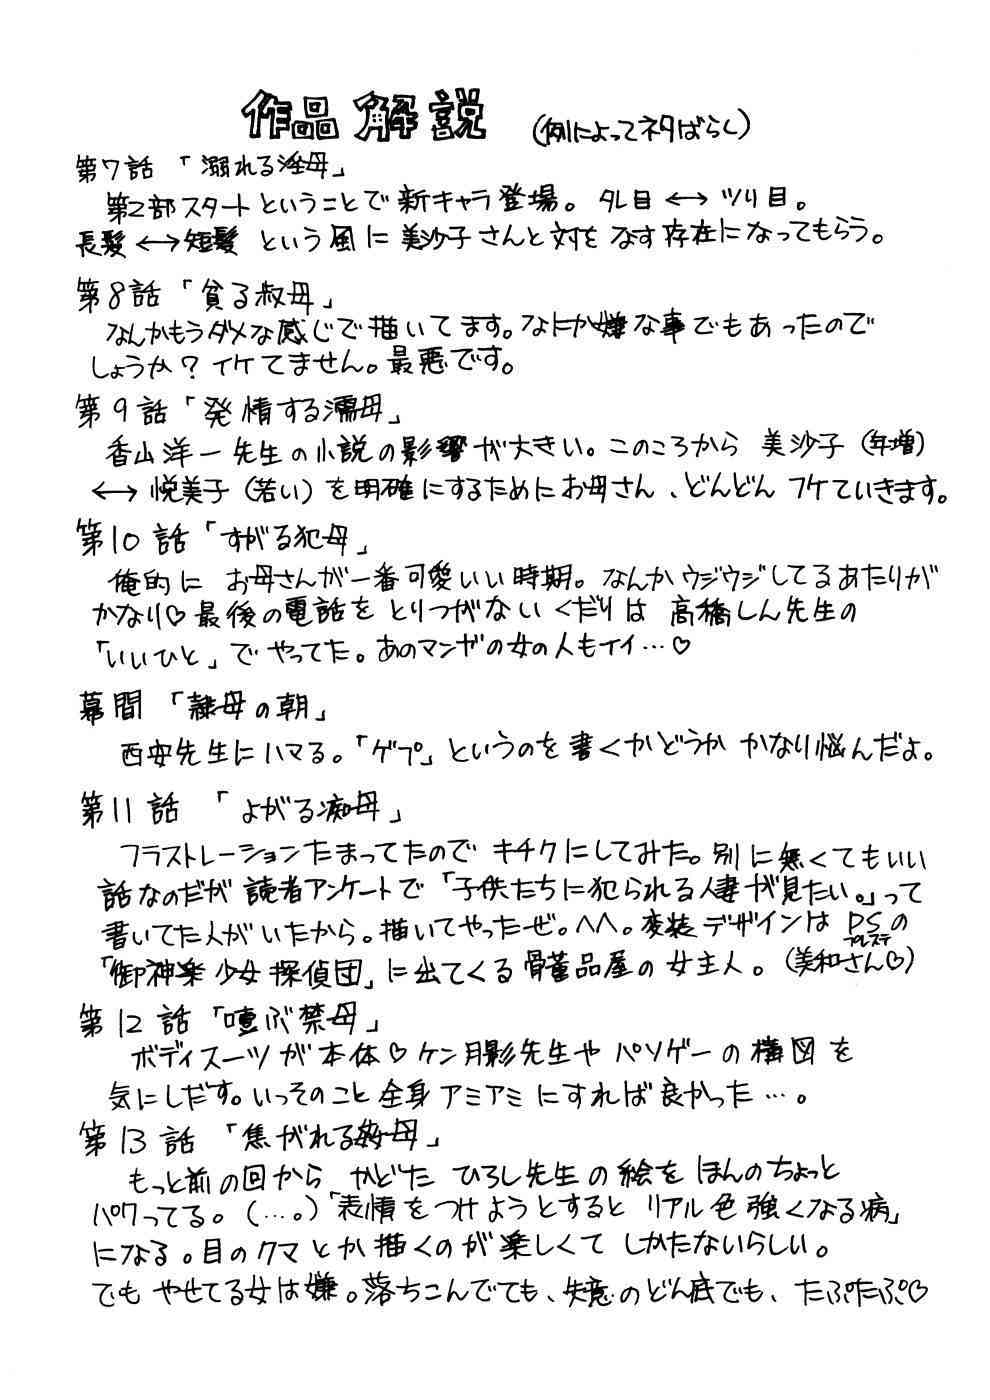 作品解説 (例によってネタばらし)
第7話 「溺れる淫母」
第2部スタートということで新キャラ登場。 タレ目 ←→ ツリ目。
長髪 ←→ 短髪 という風に美沙子さんと対をなす存在になってもらう。
第8話「貪る叔母」
なんかもうダメな感じで描いてます。なにか嫌な事でもあったので
しょうか? イケてません。最悪です。
第9話「発情する濡母」
香山洋一先生の小説の影響が大きい。このころから 美沙子(年増)
←→ 悦美子(若い)を明確にするためにお母さん、どんどんフケていきます。
第10話「すがる犯母」
俺的に お母さんが一番可愛いい時期。なんかウジウジしてるあたりが
かなり♡最後の電話をとりつがないくだりは 高橋しん先生の
「いいひと」でやってた。あのマンガの女の人もイイ…♡
幕間「隷母の朝」
西安先生にハマる。「ゲプ」というのを書くかどうか かなり悩んだよ。
第11話 「よがる痴母」
フラストレーションたまってたので キチクにしてみた。別に無くてもいい
話なのだが読者アンケートで「子供たちに犯られる人妻が見たい。」って
書いてた人がいたから。描いてやったぜ。へへ。変装デザインはPSの
プレステ
「御神楽少女探偵団」に出てくる骨董品屋の女主人。(美和さん♡)
第12話「噴ぶ禁母」
ボディスーツが本体♡ケン月影先生やパソゲーの構図を
気にしだす。いっそのこと全身アミアミにすれば良かった…。
第13話 「焦がれる母」
もっと前の回から かどたひろし先生の絵をほんのちょっと
パクってる。(…。)「表情をつけようとするとリアル色強くなる病」
になる。目のクマとか描くのが楽しくてしかたないらしい。
でもやせてる女は嫌。落ちこんでても、失意のどん底でも、たぷたぷ♡